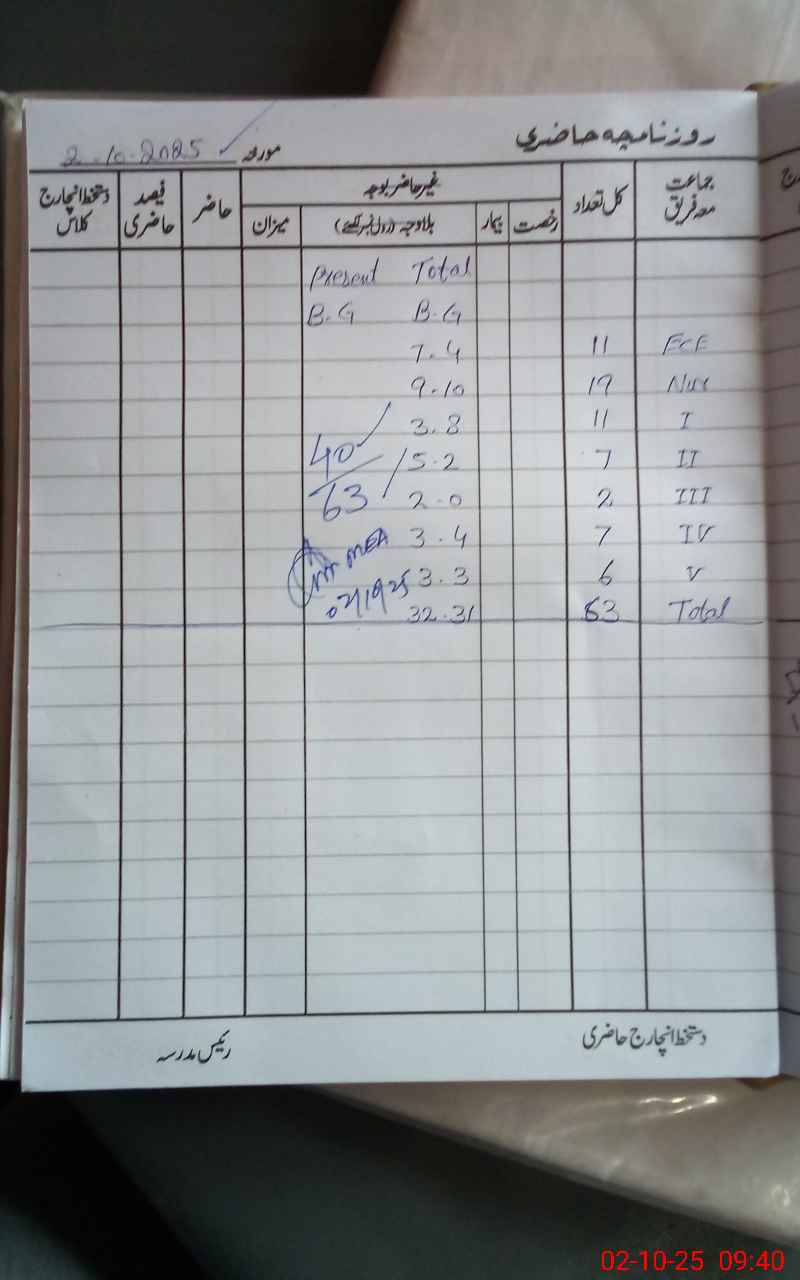 روزنامچہ حاضری
مورخہ 2-10-2025
جماعت معہ فریق
کل تعداد
غیر حاضر بوجہ
رخصت
بیمار
بلاوجہ (رول نمبر لکھیئے)
میزان
حاضر
فیصد حاضری
دستخط انچارج کلاس
Present Total
B.G B.G
7.4 11 ECE
9.10 19 Nur
3.8 11 I
5.2 7 II
2.0 2 III
3.4 7 IV
3.3 6 V
32.31 63 Total
40
63
MEA
دستخط انچارج حاضری
رئیس مدرسہ
02-10-25 09:40